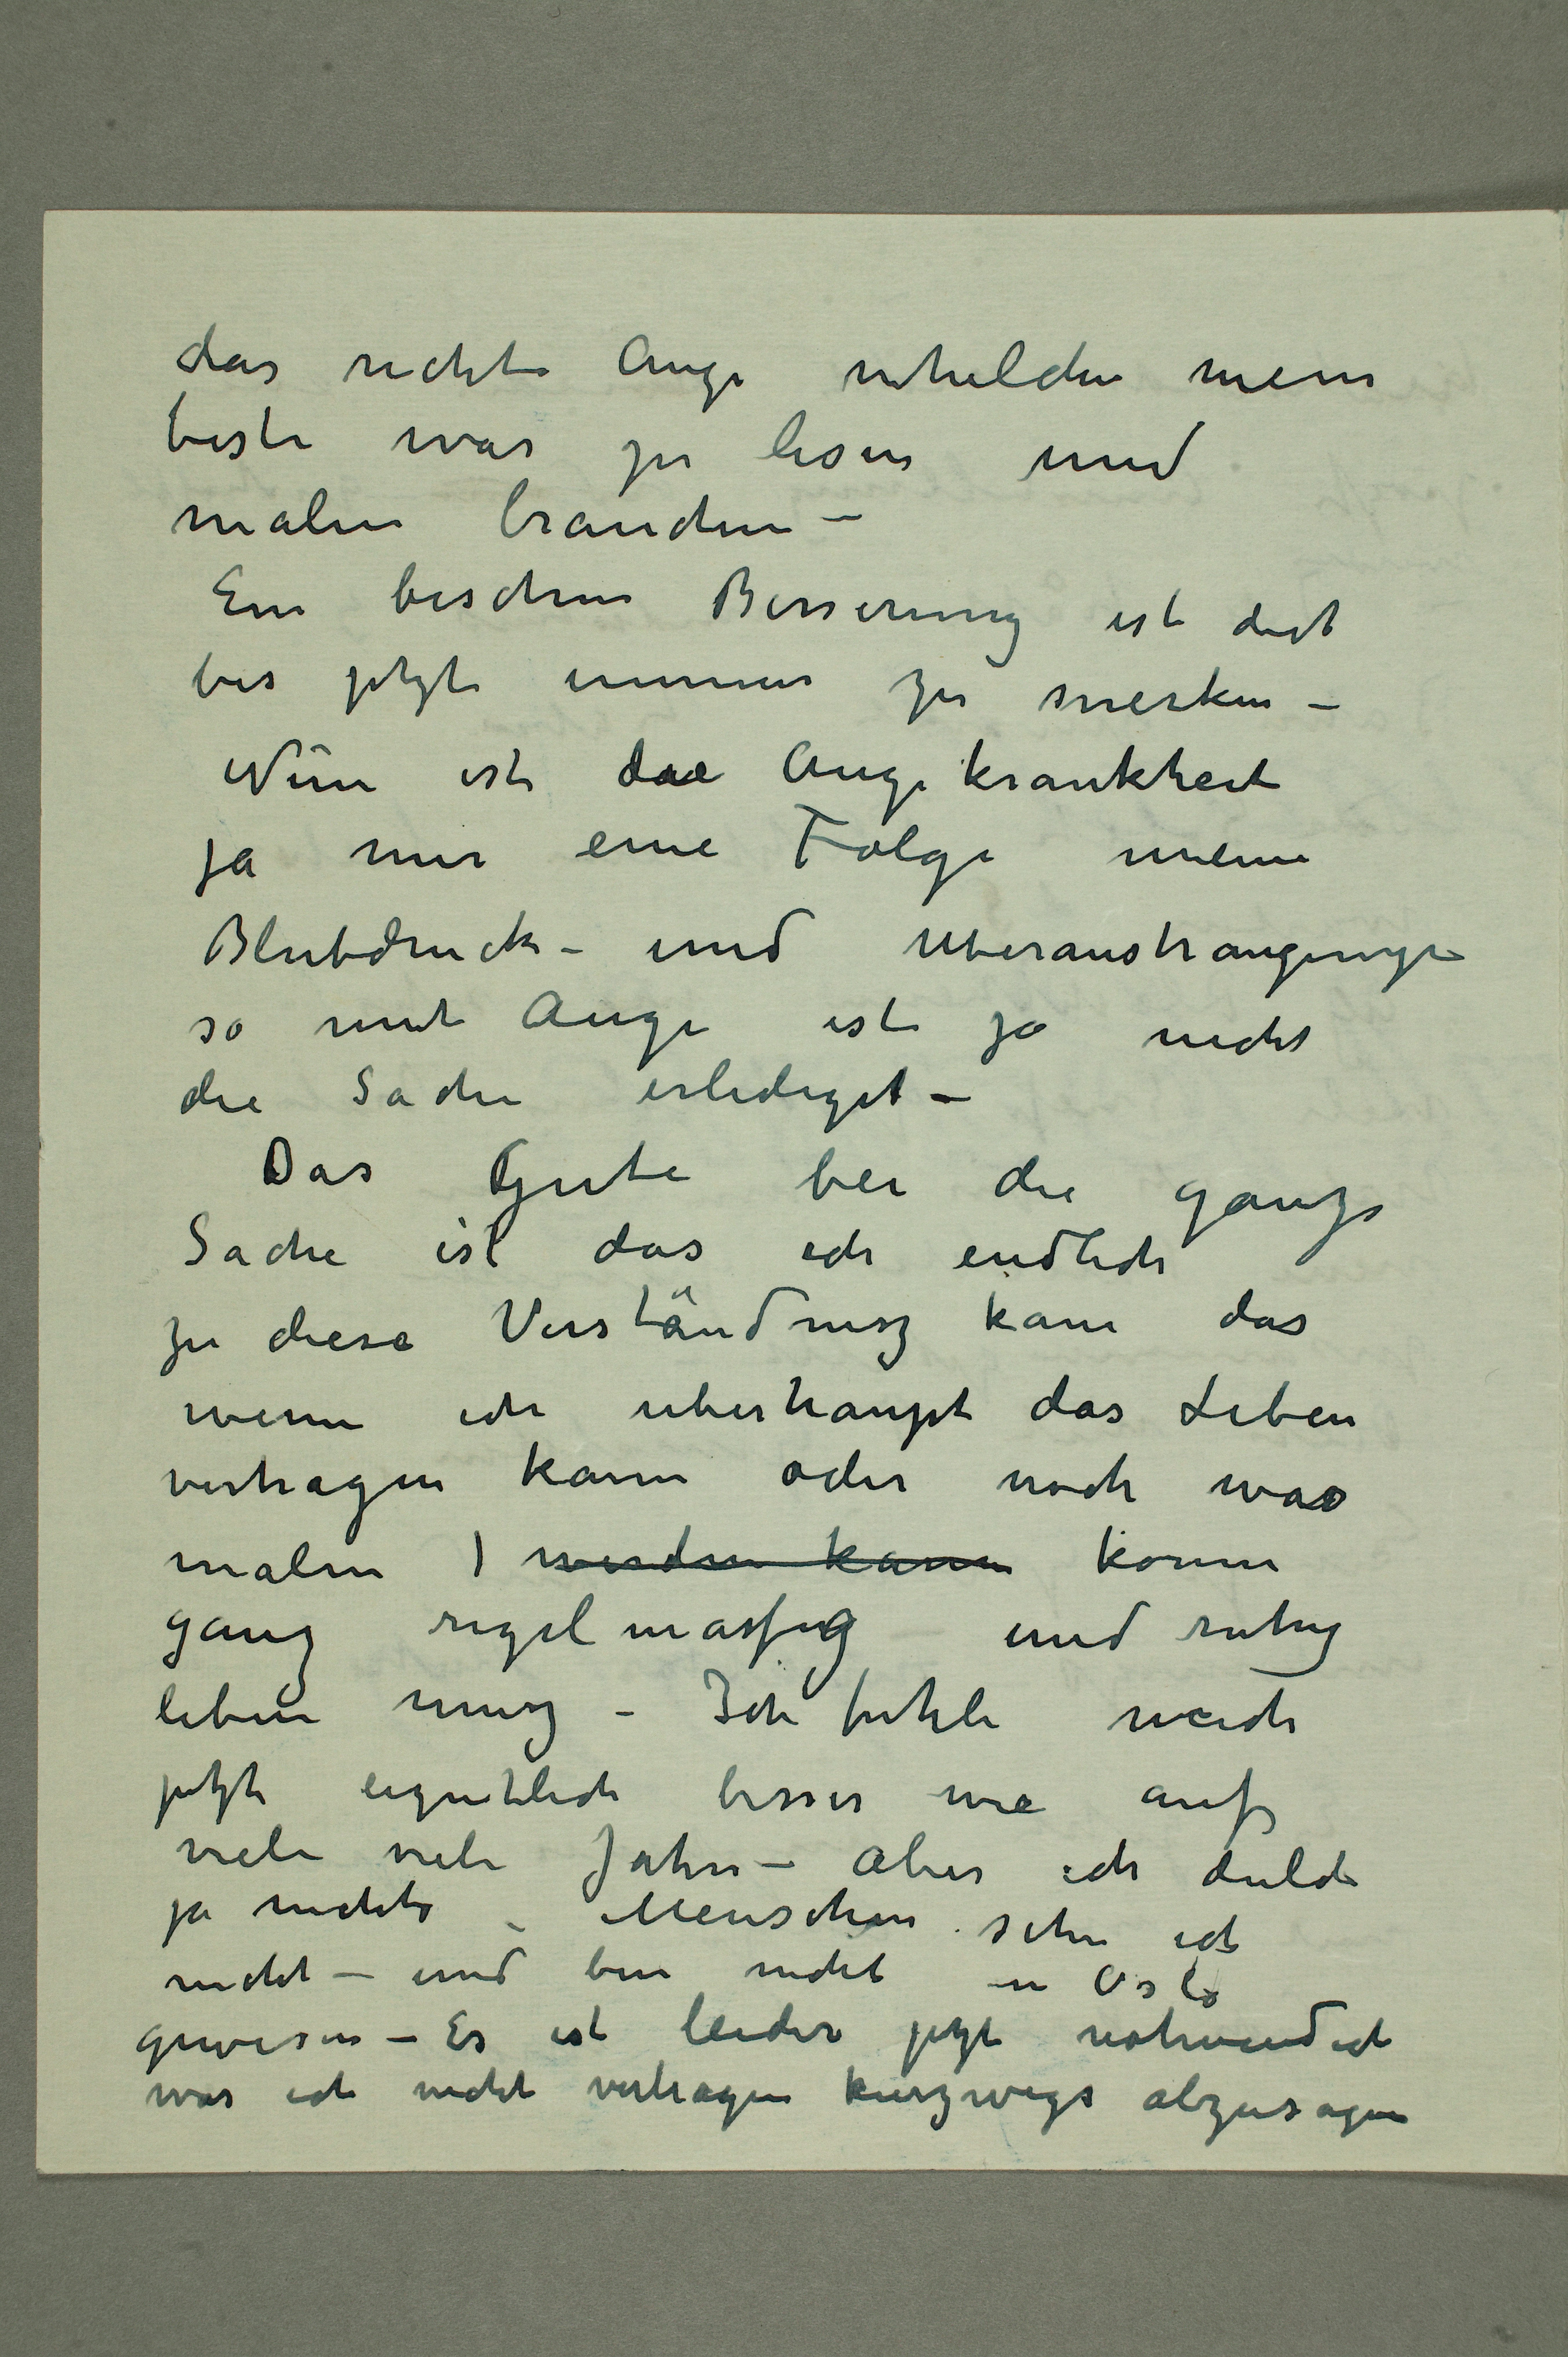 das rechte Auge whelche mein
beste war zu lesen und
malen brauchen –
Ein bischen Besserung ist dort
bis jetzt immer zu merken –
Nun ist dae Augekrankheit
ja nur eine Folge meine
Blutdruck – und Uberanstrangung –
so mit Auge ist ja nicht
die Sache erlediget –
Das Gute bei die ganze
Sache ist das ich endlich
zu diese Verständnisz kam das
wenn ich uberhaupt das Leben
vertragen kann oder noch was
malen ) werden kann könne
ganz regelmassig und ruhig
leben musz – Ich fuhle mich
jetzt eigentlich besser wie auf
viele viele Jahre – aber ich dulde
ja nichts – Menschen sehe ich
nicht – und bin nicht in Oslo
gewesen – Es ist leider jetzt nohwendich
was ich nicht vertragen kurzwegs abzusagen